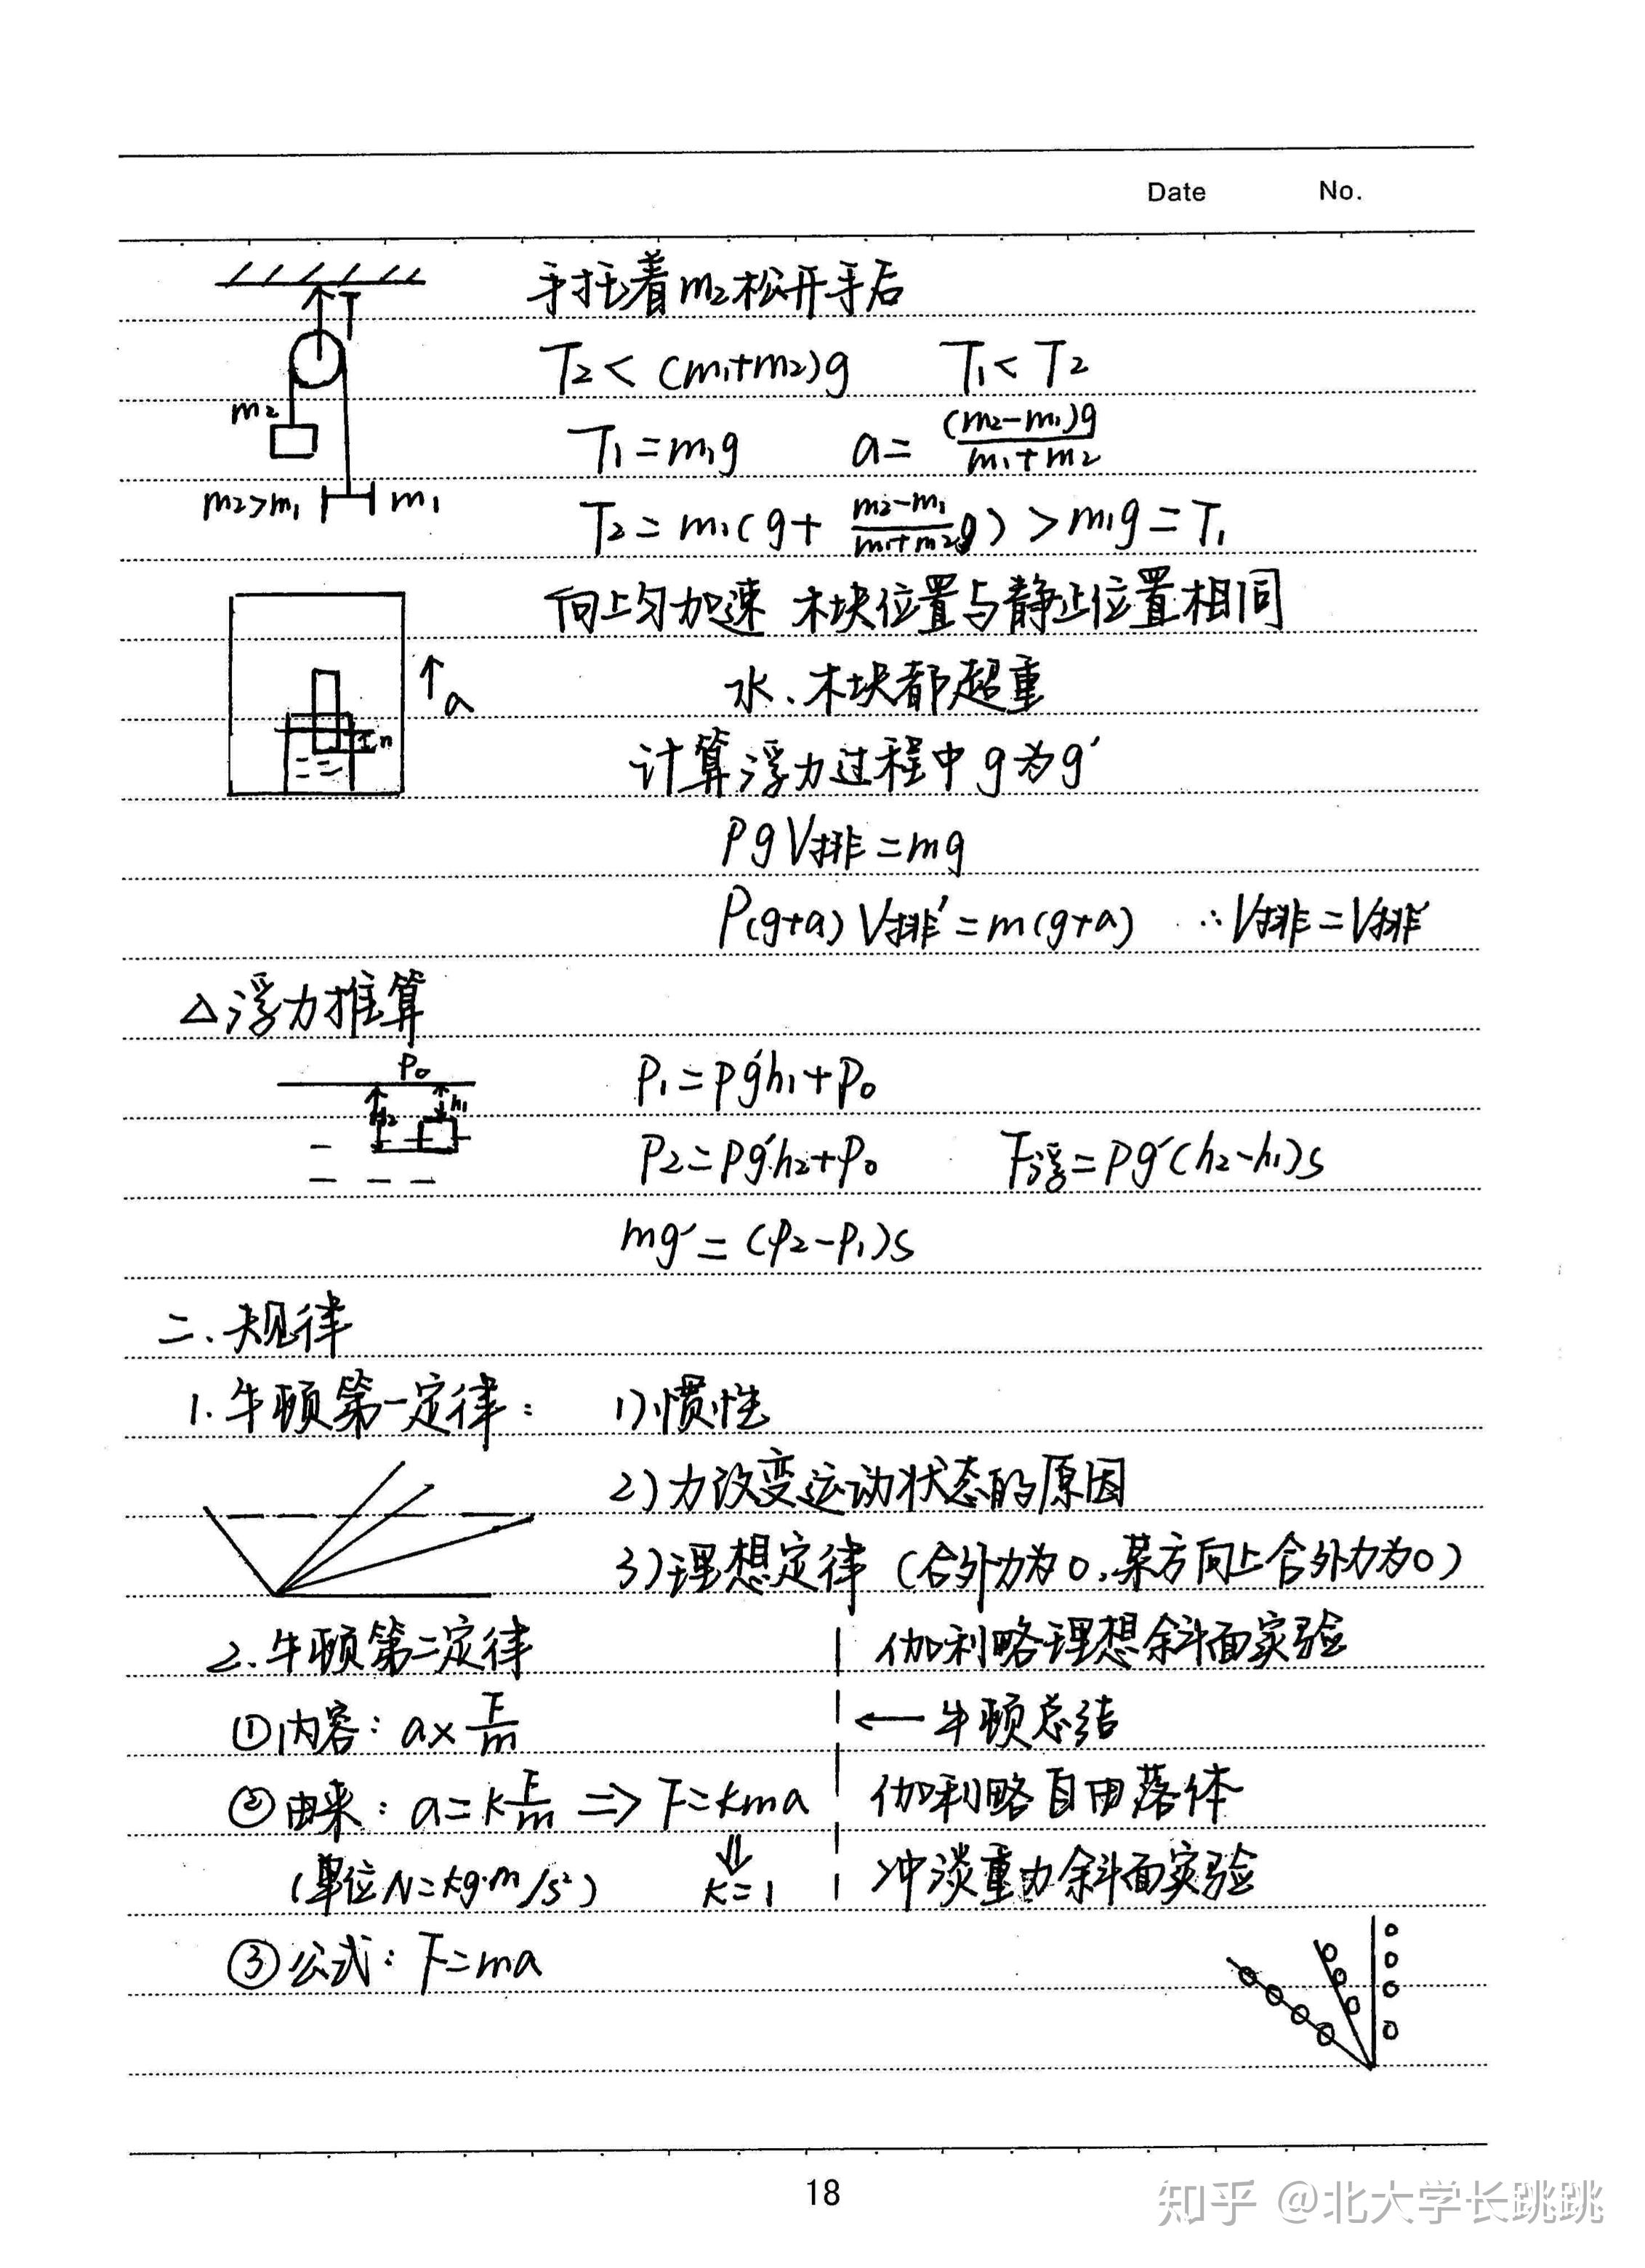 Date No.
手托着m₂松开手后
T
T₂< (m₁+m₂)g T₁< T₂
m₂
T₁=m₁g a= (m₂-m₁)g/(m₁+m₂)
m₂>m₁ m₁
T₂=m₁(g+ (m₂-m₁)/(m₁+m₂)g) >m₁g=T₁
向上匀加速 木块位置与静止位置相同
a
水、木块都超重
计算浮力过程中g为g′
ρgV排=mg
ρ(g+a)V排′=m(g+a) ∴V排=V排′
△浮力推算
P₀
h₂ h₁
P₁=ρg′h₁+P₀
P₂=ρg′h₂+P₀ F浮=ρg′(h₂-h₁)s
mg′=(P₂-P₁)s
二.规律
1.牛顿第一定律: 1)惯性
2)力改变运动状态的原因
3)理想定律(合外力为0,某方向上合外力为0)
2.牛顿第二定律 伽利略理想斜面实验
①内容: a∝F/m ←牛顿总结
②由来: a=kF/m ⇒ F=kma 伽利略自由落体
(单位N=kg·m/s²) ⇓ k=1 冲淡重力斜面实验
③公式: F=ma
18
知乎 @北大学长跳跳